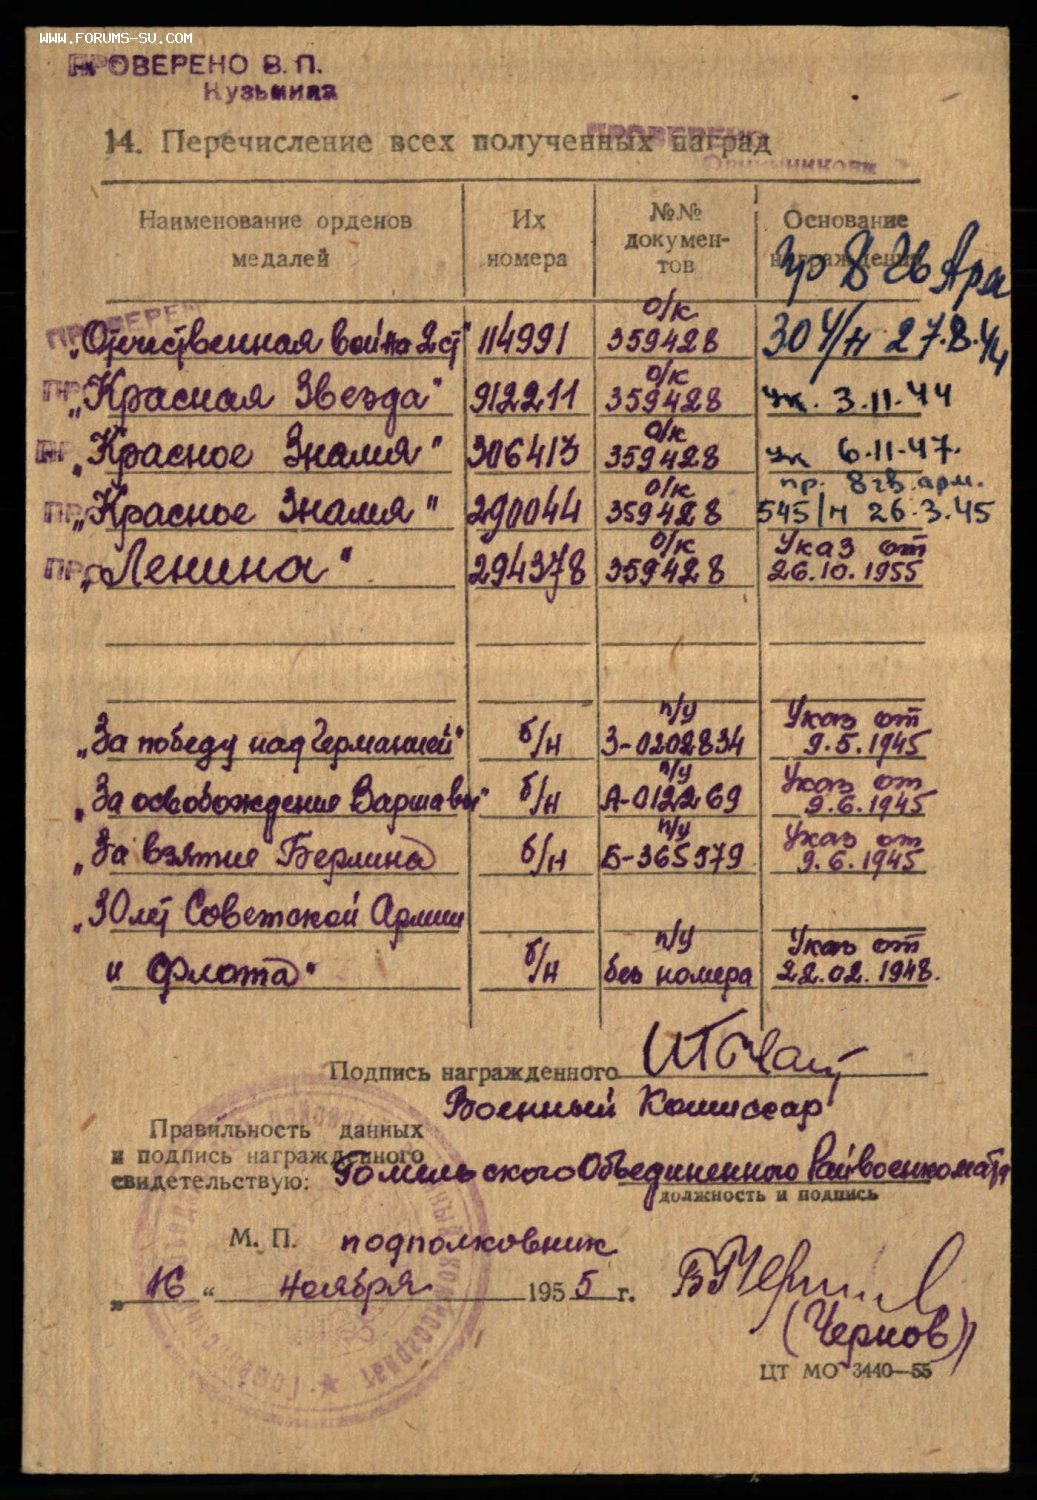 WWW.FORUMS-SU.COM
ПРОВЕРЕНО В. П.
Кузьмина
14. Перечисление всех полученных наград
ПРОВЕРЕНО
Наименование орденов медалей
Их номера
№№ документов
Основание награждения
Пр 8 гв Арм
ПРОВЕРЕ
„Отечественная война 2 ст" 114991 о/к 359428 304/н 27.8.44
ПР „Красная Звезда" 912211 о/к 359428 Ук. 3.11.44
ПР „Красное Знамя" 306413 о/к 359428 Ук 6.11.47.
ПР „Красное Знамя" 290044 о/к 359428 пр. 8 гв. арм. 545/н 26.3.45
ПР „Ленина" 294378 о/к 359428 Указ от 26.10.1955
„За победу над Германией" б/н п/у З-0202834 Указ от 9.5.1945
„За освобождение Варшавы" б/н п/у А-012269 Указ от 9.6.1945
„За взятие Берлина б/н п/у Б-365579 Указ от 9.6.1945
„30 лет Советской Армии
и Флота" б/н п/у без номера Указ от 22.02.1948.
Подпись награжденного
Военный Комиссар
Правильность данных
и подпись награжденного
свидетельствую: Гомельского Объединенного Райвоенкомата
должность и подпись
М. П. подполковник
„16" ноября 1955 г.
(Чернов)
ЦТ МО 3440—55